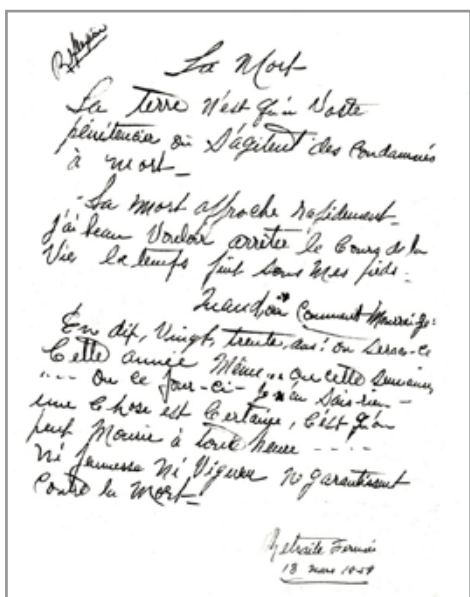 La Mort
La terre n'est qu'un Vaste
pénitencier où S'agitent des Condamnés
à Mort_
- La Mort approche rapidement_
J'ai beau Vouloir arrêter le Cours de la
Vie le temps fuit sous Mes pieds.
Quand où Comment Mourrai-Je:
En dix, Vingt, trente, ans! ou Sera-ce
Cette année Même... ou cette Semaine,
.... ou ce Jour-ci - Je n'en Sais-rien -
une Chose est Certaine, C'est qu'on
peut Mourir à toute heure ....
Ni Jeunesse Ni Vigueur ne garantissent
Contre la Mort_
Retraite Fermée
13 mars